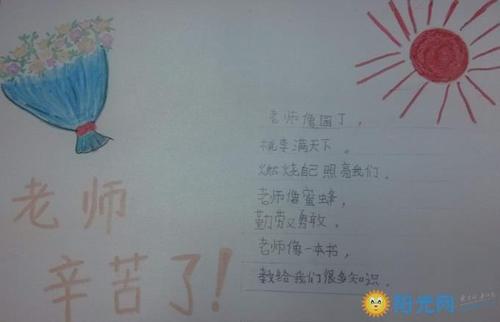 老师
辛苦了!
老师像园丁，
桃李满天下。
燃烧自己照亮我们。
老师像蜜蜂，
勤劳又勇敢。
老师像一本书，
教给我们很多知识。
阳光网